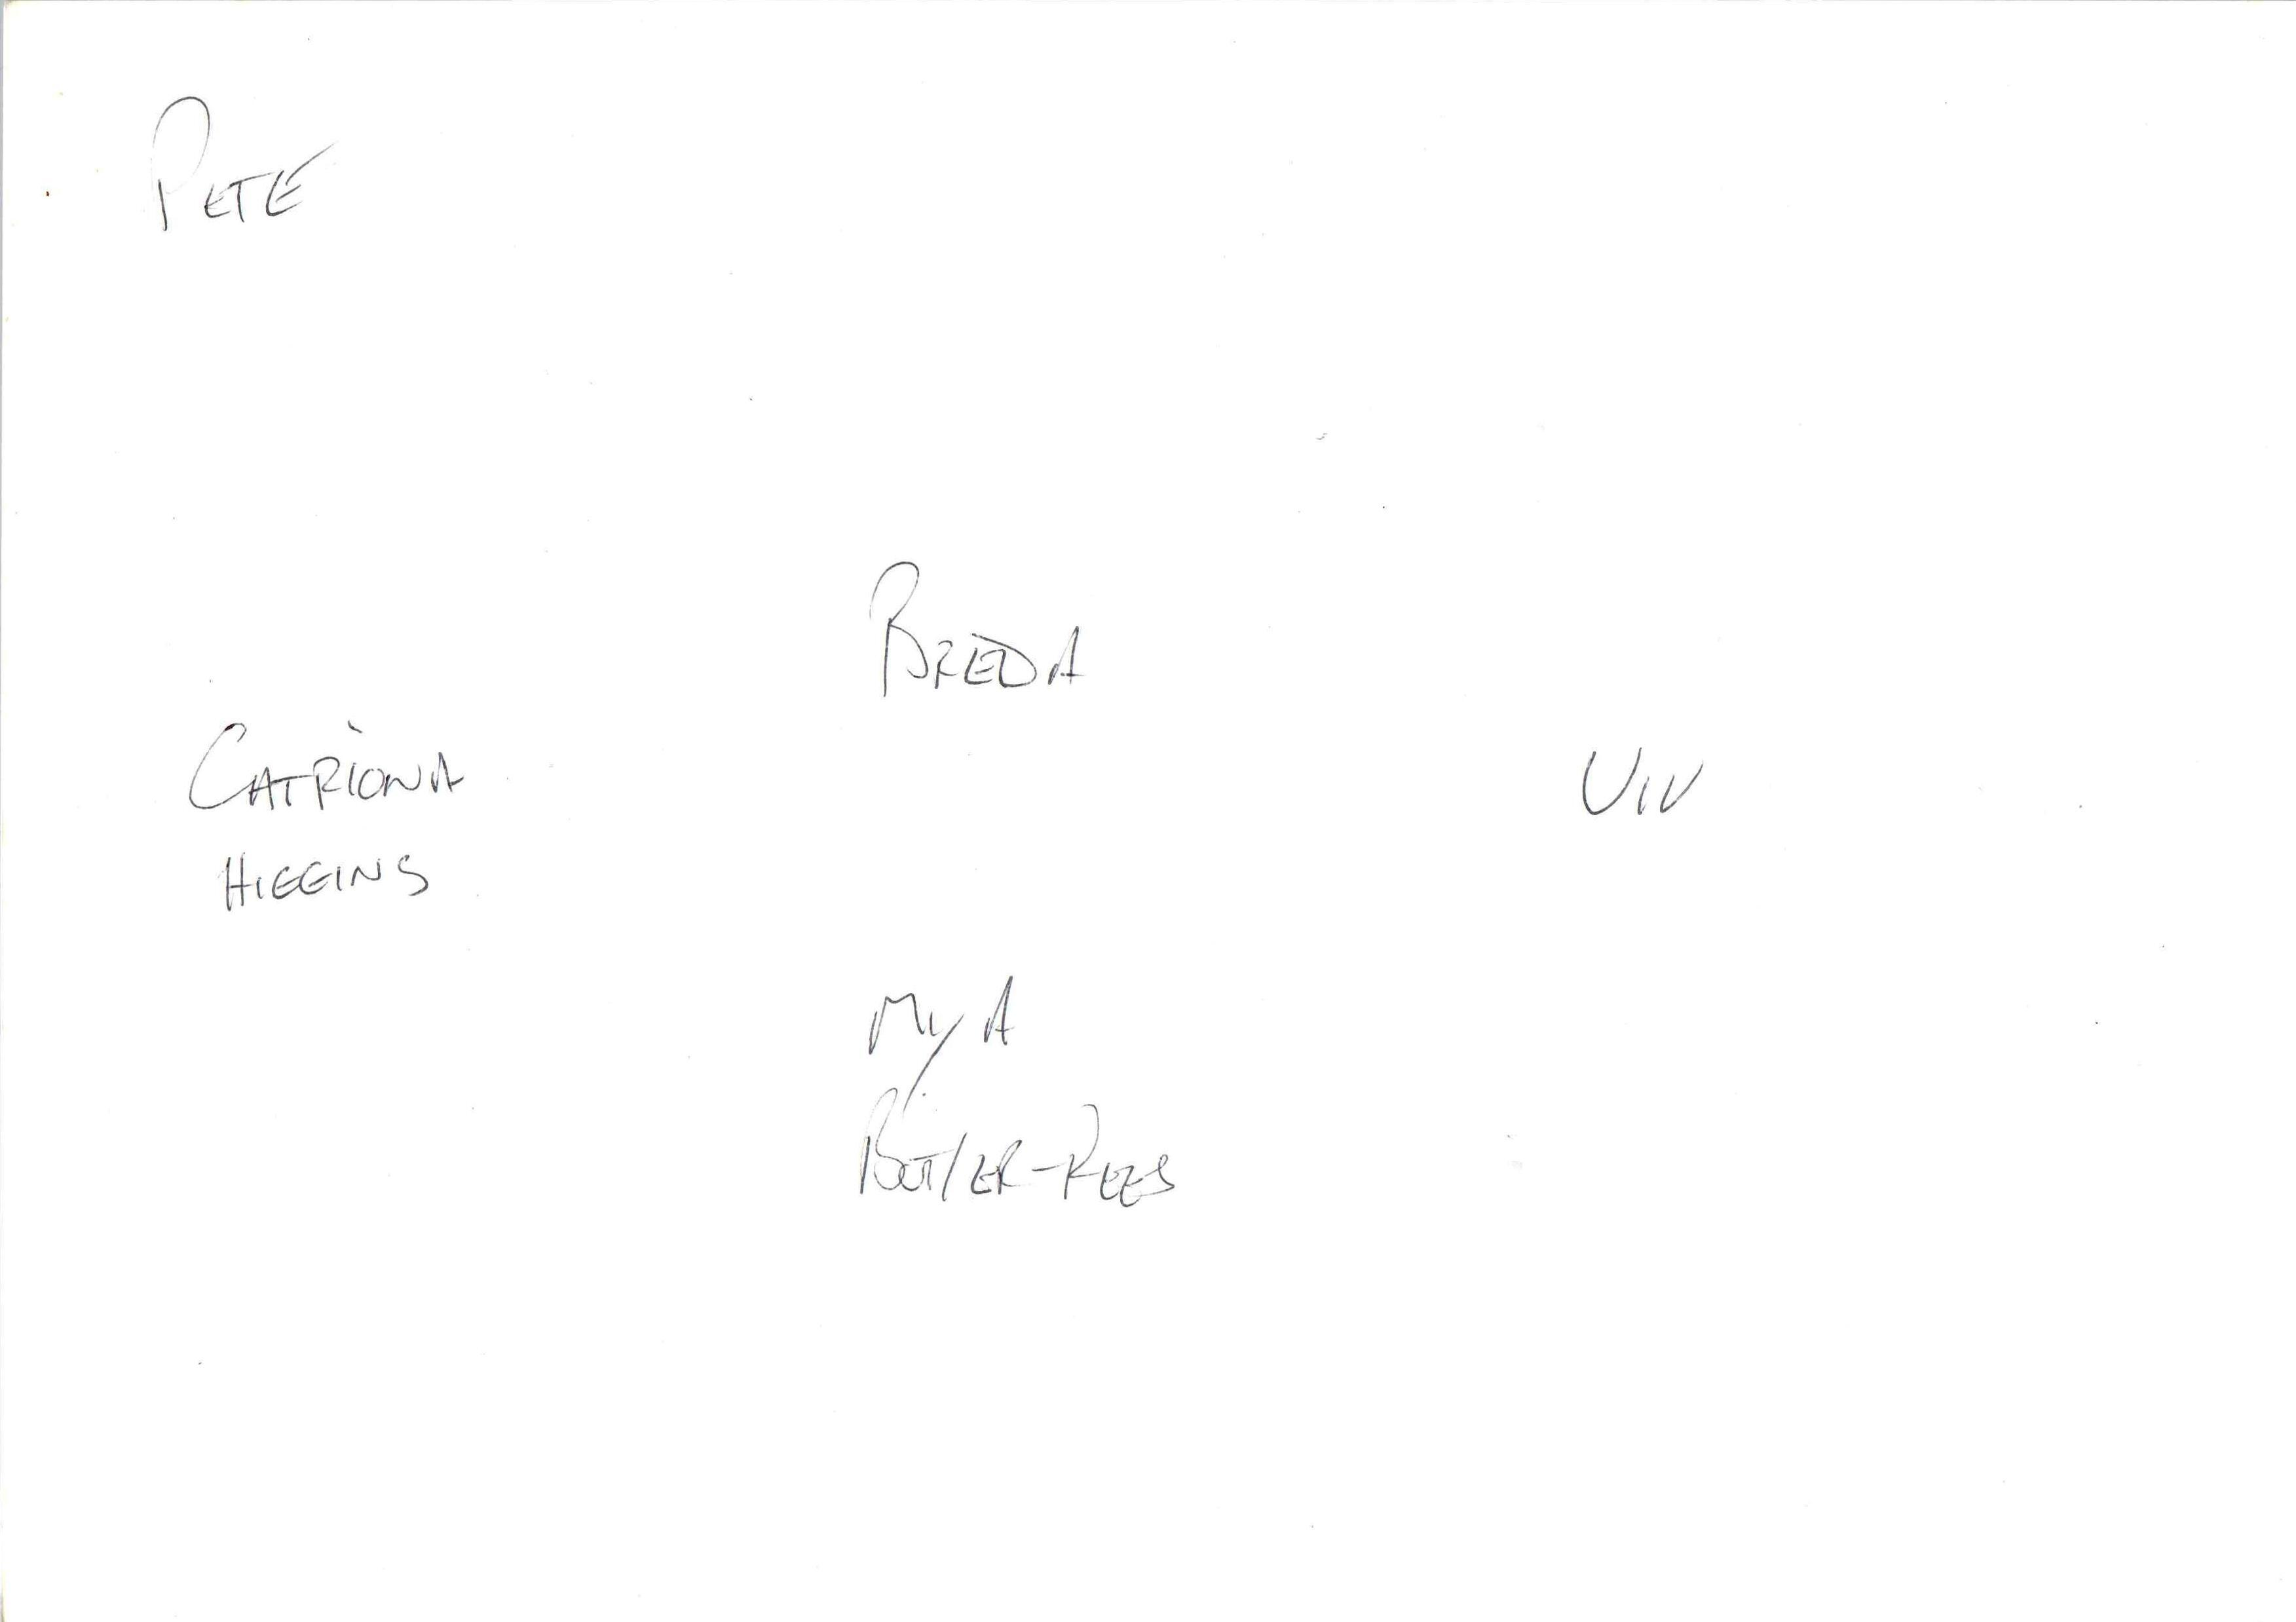 PETE
BREDA
CATRÌONA
HIGGINS
VIV
MYA
BUTLER-REES